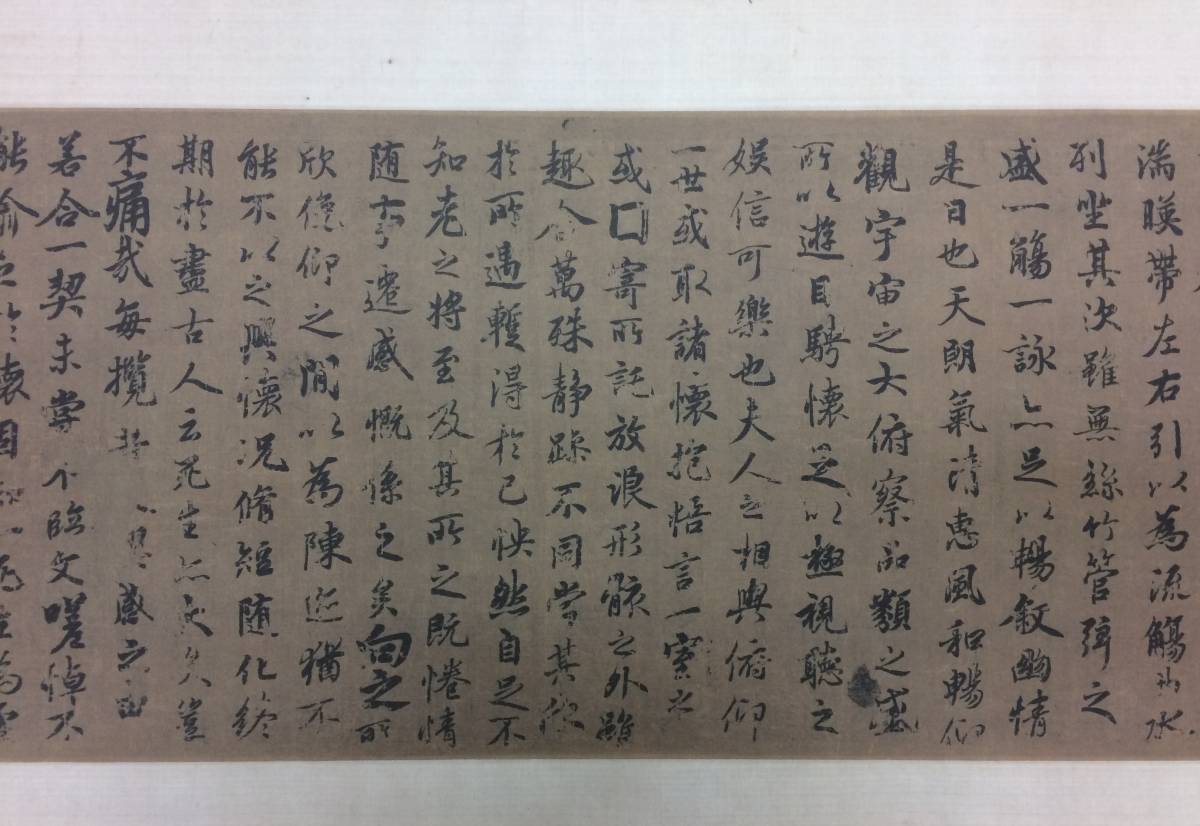 湍暎帶左右引以為流觴曲水
列坐其次雖無絲竹管弦之
盛一觴一詠亦足以暢敘幽情
是日也天朗氣清惠風和暢仰
觀宇宙之大俯察品類之盛
所以遊目騁懷足以極視聽之
娛信可樂也夫人之相與俯仰
一世或取諸懷抱悟言一室之
或囗寄所託放浪形骸之外雖
趣舍萬殊靜躁不同當其欣
於所遇暫得於己怏然自足不
知老之將至及其所之既惓情
隨事遷感慨係之矣向之所
欣俛仰之閒以為陳迹猶不
能不以之興懷況脩短隨化終
期於盡古人云死生亦大矣豈
不痛哉每攬昔興感之由
若合一契未嘗不臨文嗟悼不
能喻之於懷固